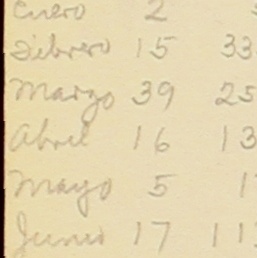 Enero 2
Febrero 15 33
Marzo 39 25
Abril 16 13
Mayo 5 1
Junio 17 11